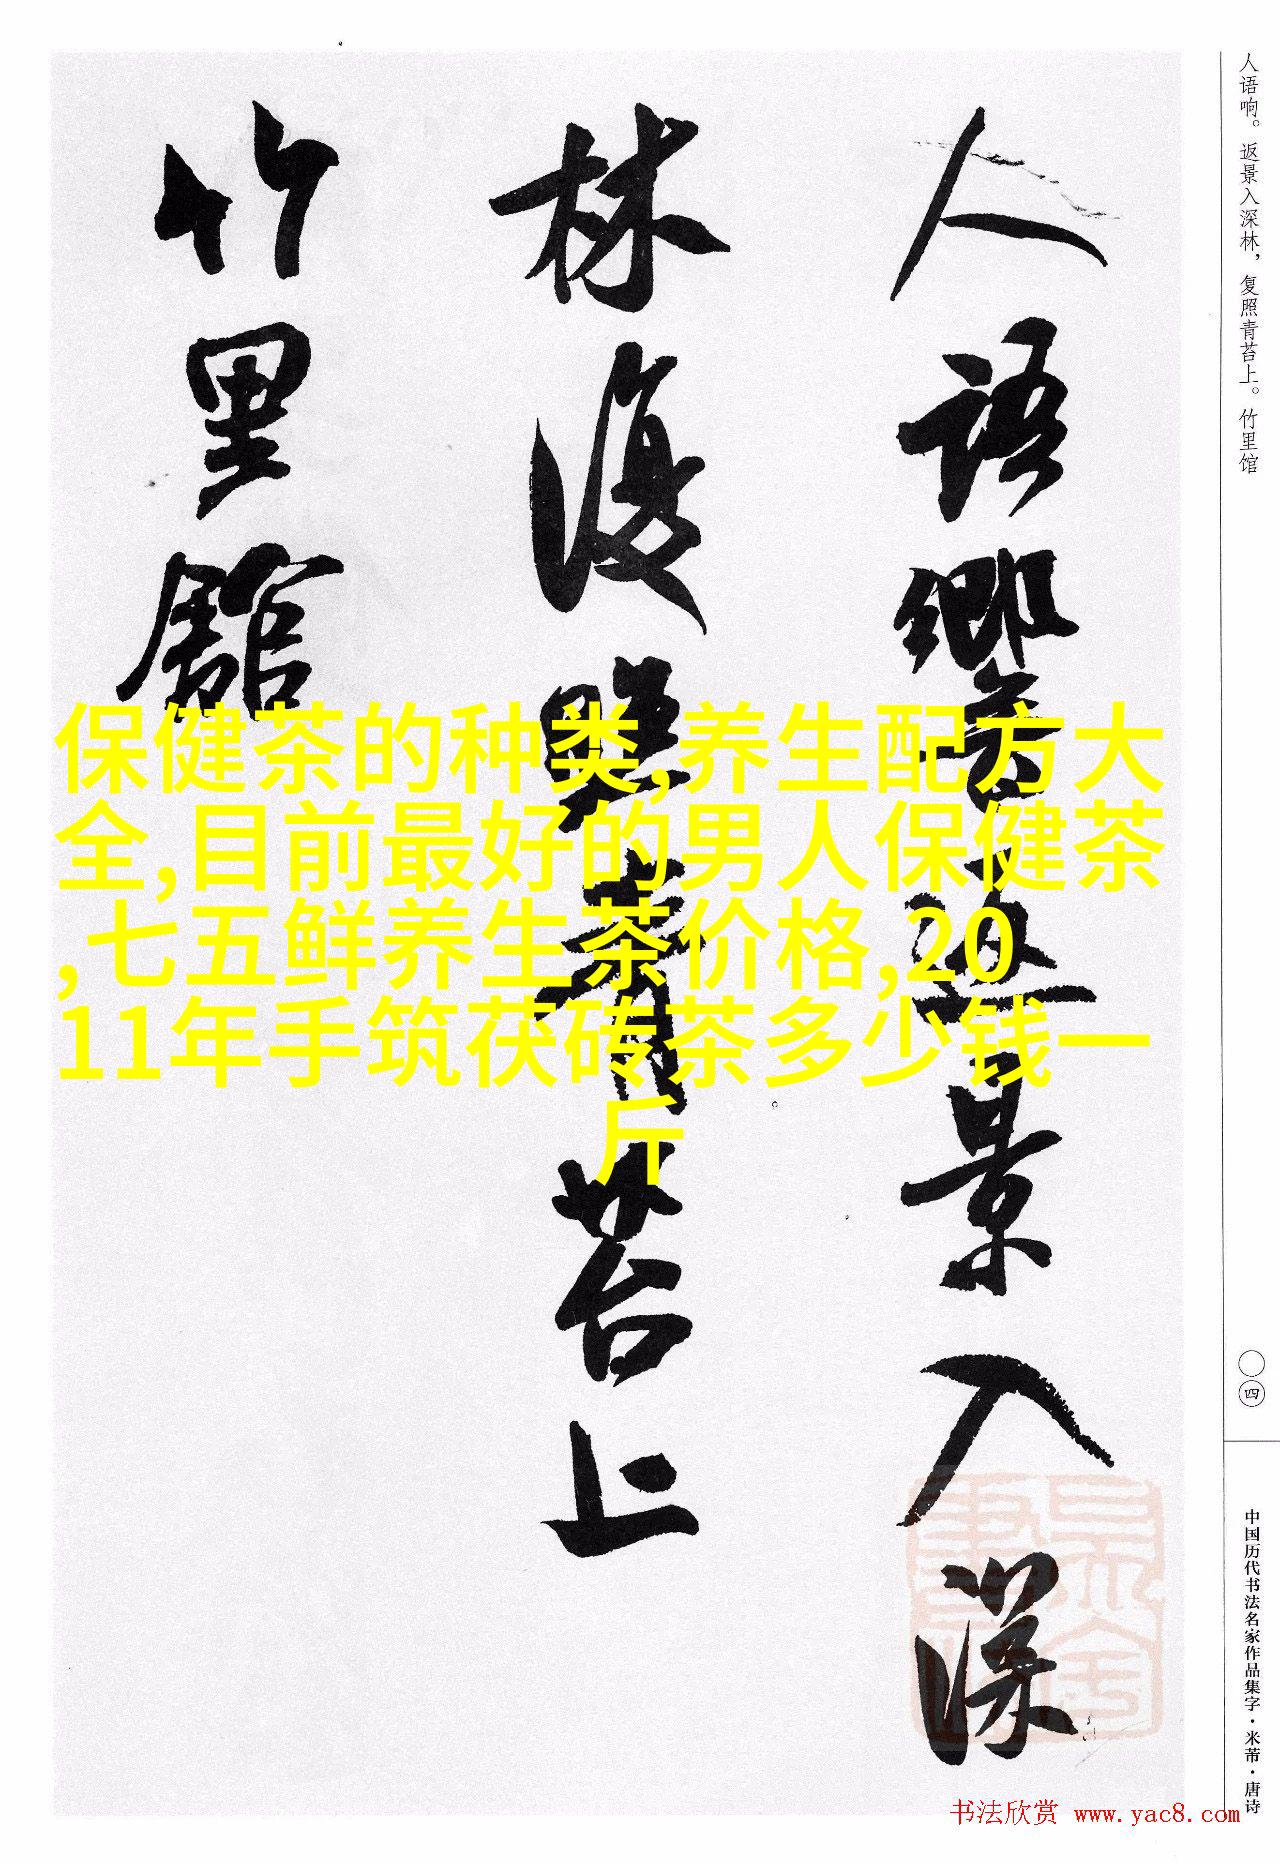 人语响。返景入深林，复照青苔上。竹里馆
人語響返景入深
林復照青苔上
竹里館
保健茶的种类,养生配方大
全,目前最好的男人保健茶
,七五鲜养生茶价格,20
11年手筑茯砖茶多少钱一
斤
〇四
中国历代书法名家作品集字·米芾·唐诗
书法欣赏 www.yac8.com